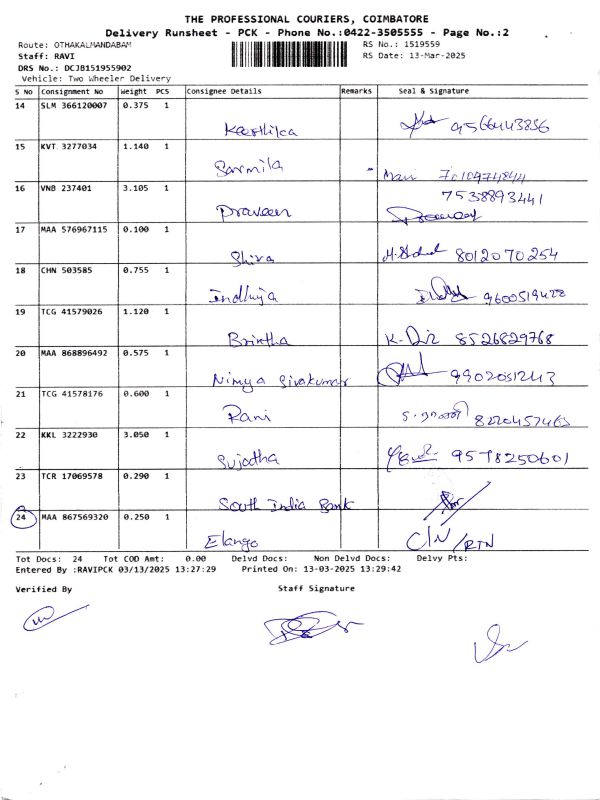 THE PROFESSIONAL COURIERS, COIMBATORE
Delivery Runsheet - PCK - Phone No.:0422-3505555 - Page No.:2
Route: OTHAKALMANDABAM RS No.: 1519559
Staff: RAVI RS Date: 13-Mar-2025
DRS No.: DCJB151955902
Vehicle: Two Wheeler Delivery
S No Consignment No Weight PCS Consignee Details Remarks Seal & Signature
14 SLM 366120007 0.375 1
Karthika 9566443856
15 KVT 3277034 1.140 1
Sarmila
16 VNB 237401 3.105 1 7538893441
Praveen
17 MAA 576967115 0.100 1
Shiva 8012070254
18 CHN 503585 0.755 1
Indhuja 9600519428
19 TCG 41579026 1.120 1
Brintha 8526829768
20 MAA 868896492 0.575 1
Nimya Sivakumar
21 TCG 41578176 0.600 1
Rani ராணி 8220457463
22 KKL 3222930 3.050 1
Sujatha 9578250601
23 TCR 17069578 0.290 1
South India Bank
24 MAA 867569320 0.250 1
Elango C/N /RTN
Tot Docs: 24 Tot COD Amt: 0.00 Delvd Docs: Non Delvd Docs: Delvy Pts:
Entered By :RAVIPCK 03/13/2025 13:27:29 Printed On: 13-03-2025 13:29:42
Verified By Staff Signature